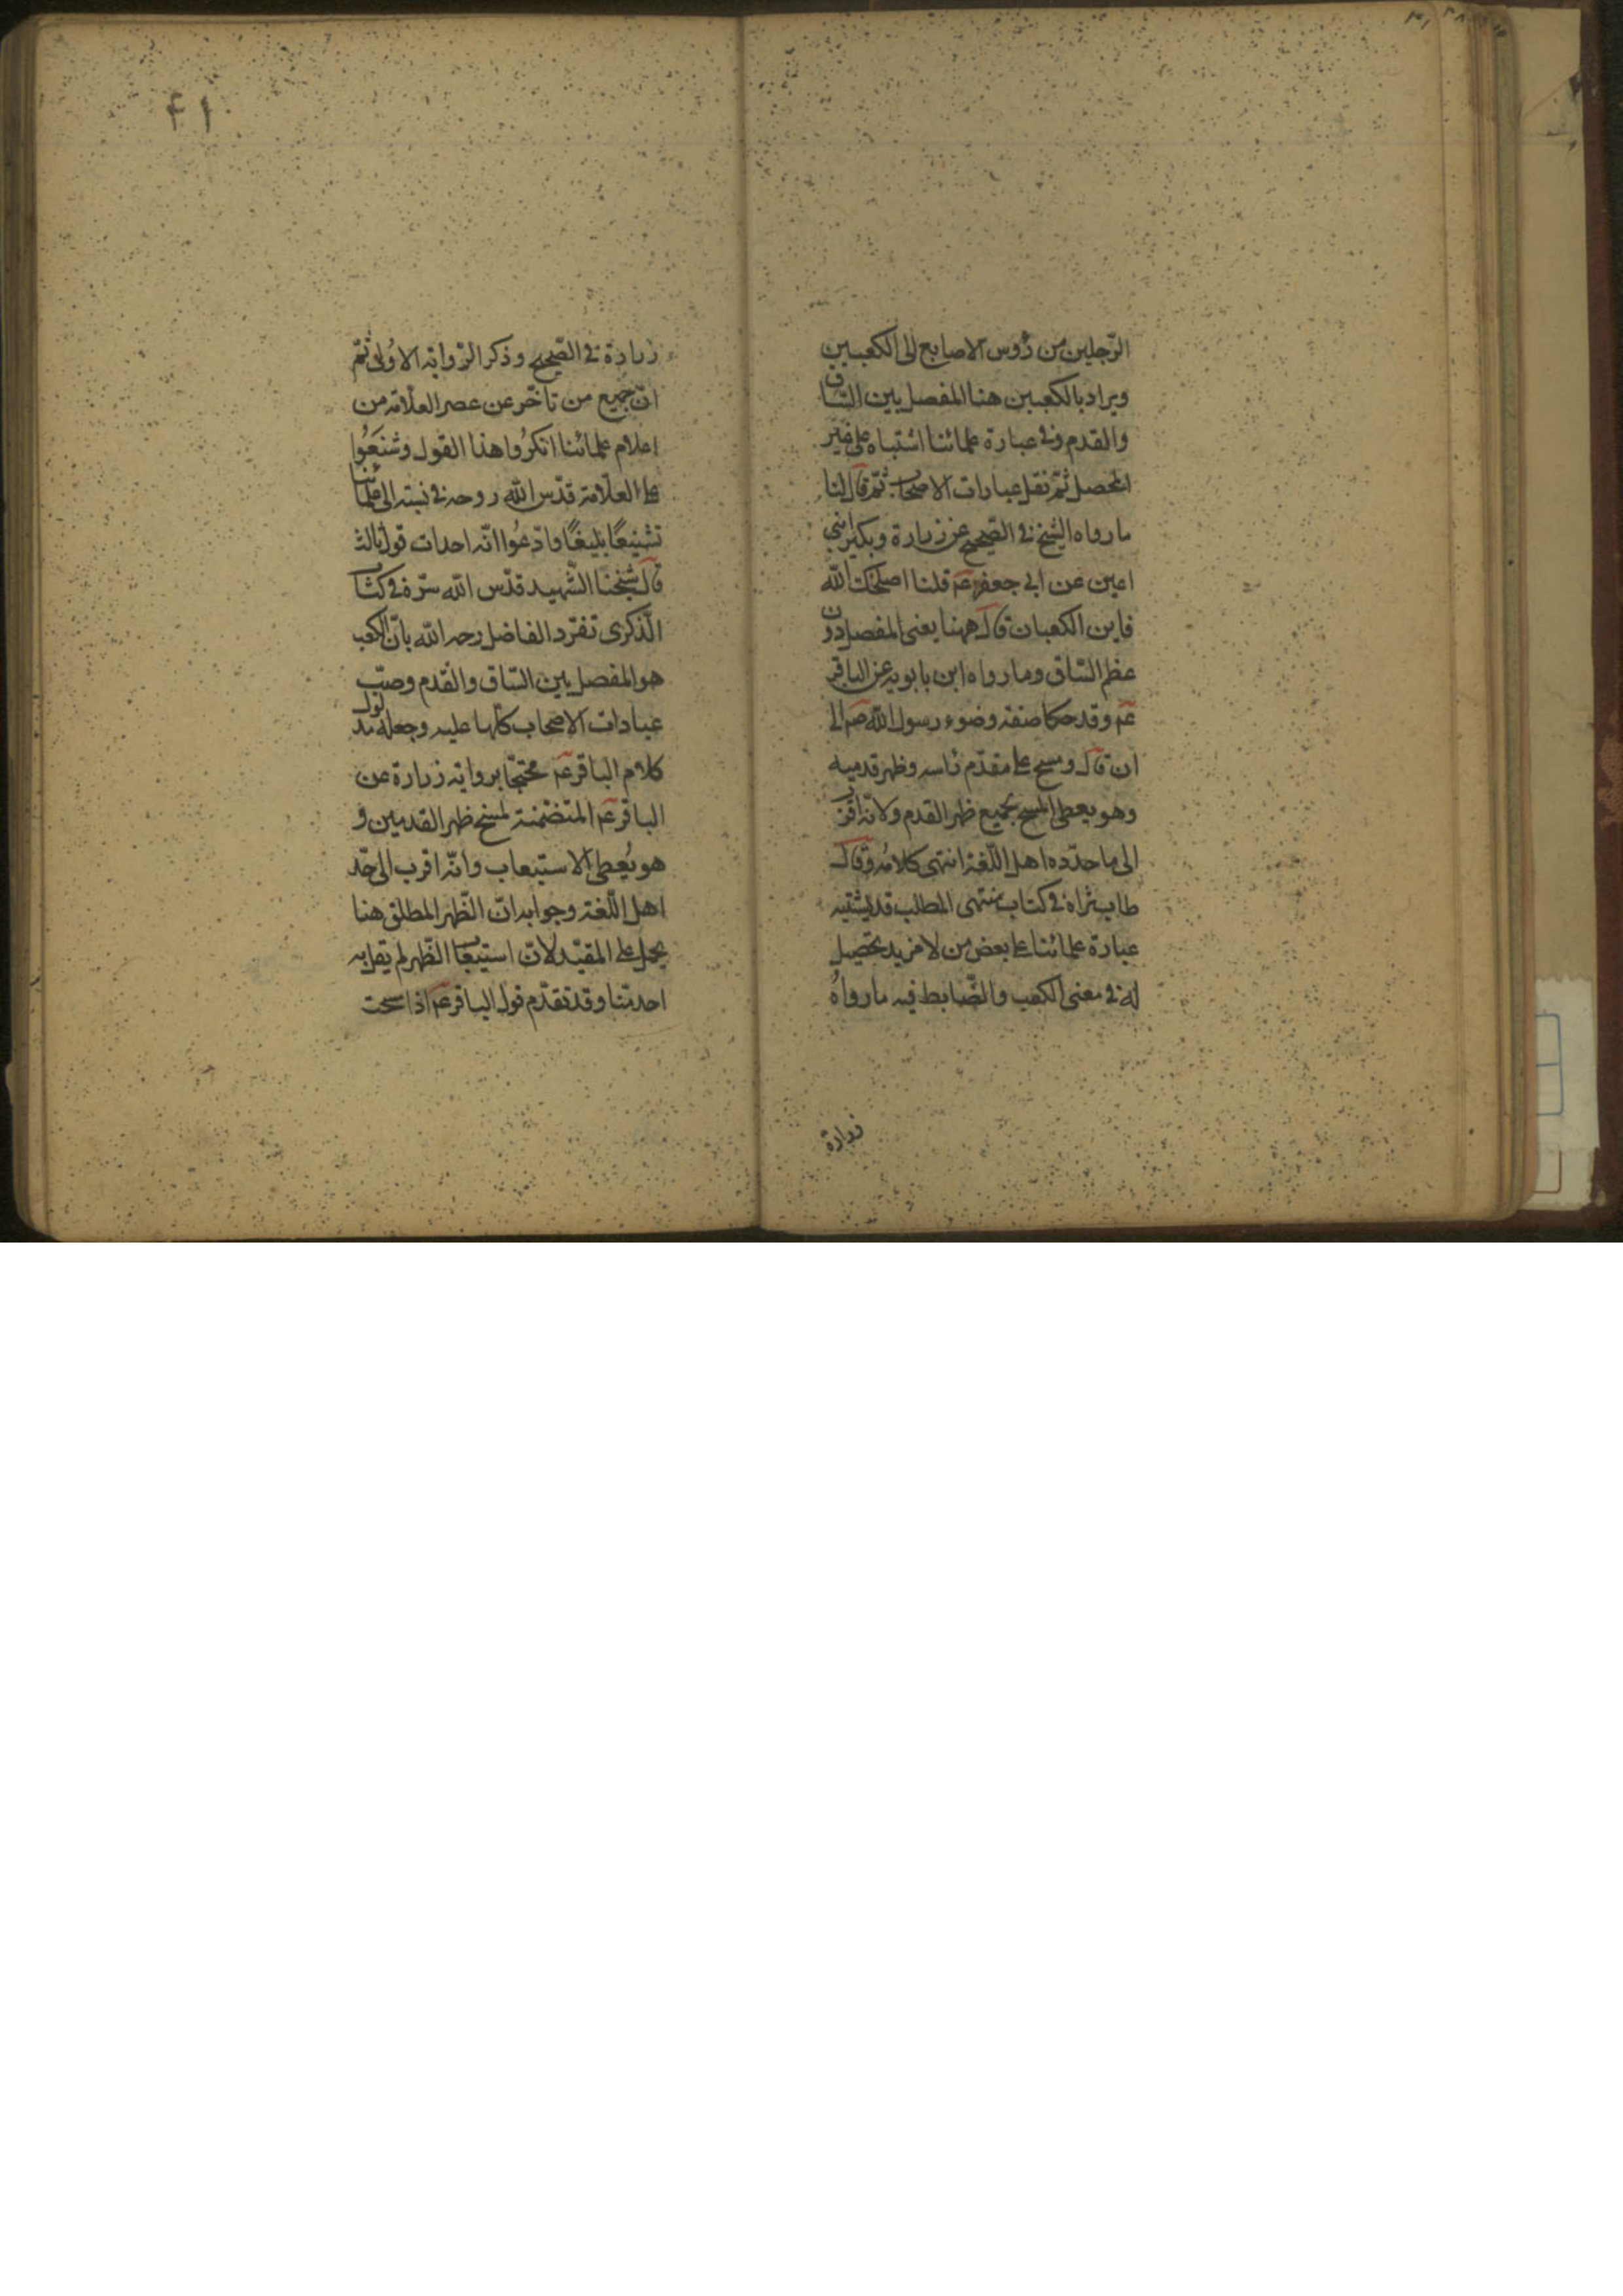 الرّجلين من رؤس الاصابع الى الكعبين
ويراد بالكعبين هنا المفصل بين السّاق
والقدم وفى عبارة علمائنا اشتباه على غير
المحصل ثمّ نقل عبارات الاصحاب ثمّ قال لنا
ما رواه الشيخ فى الصّحيح عن زرارة وبكير ابنى
اعين عن ابى جعفر عم قلنا اصلحك الله
فاين الكعبان قال ههنا يعنى المفصل دون
عظم السّاق وما رواه ابن بابويه عن الباقر
عم وقد حكا صفة وضوء رسول الله صم الى
ان قال ومسح على مقدّم راسه وظهر قدميه
وهو يعطى المسح بجميع ظهر القدم ولانّه اقرب
الى ما حدّده اهل اللّغة انتهى كلامه وقال
طاب ثراه فى كتاب منتهى المطلب قد يشتبه
عبارة علمائنا على بعض من لا مزيد تحصيل
له فى معنى الكعب والضّابط فيه ما رواه
زرارة
۴۱
زرارة فى الصّحيح وذكر الرّواية الاولى ثمّ
انّ جميع من تاخّر عن عصر العلّامة من
اعلام علمائنا انكرُوا هذا القول وشنعَوُا
على العلّامة قدّس الله روحه فى نسبته الى علمائنا
تشنيعًا بليغًا وادّعُوا انّه احداث قول ثالث
قال شيخنا الشّهيد قدّس الله سرّه فى كتاب
الذّكرى تفرّد الفاضل رحمه الله بانّ الكعب
هو المفصل بين السّاق والقدم وصبّ
عبارات الاصحاب كلّها عليه وجعله مدلول
كلام الباقر عم محتجّا برواية زرارة عن
الباقر عم المتضمّنة لمسح ظهر القدمين و
هو يُعطى الاستيعاب وانّه اقرب الى حدّ
اهل اللّغة وجوابه انّ الظّهر المطلق هنا
يحمل على المقيّد لانّ استيعاب الظّهر لم يقل به
احد منّا وقد تقدّم قول الباقر عم اذا مسحت